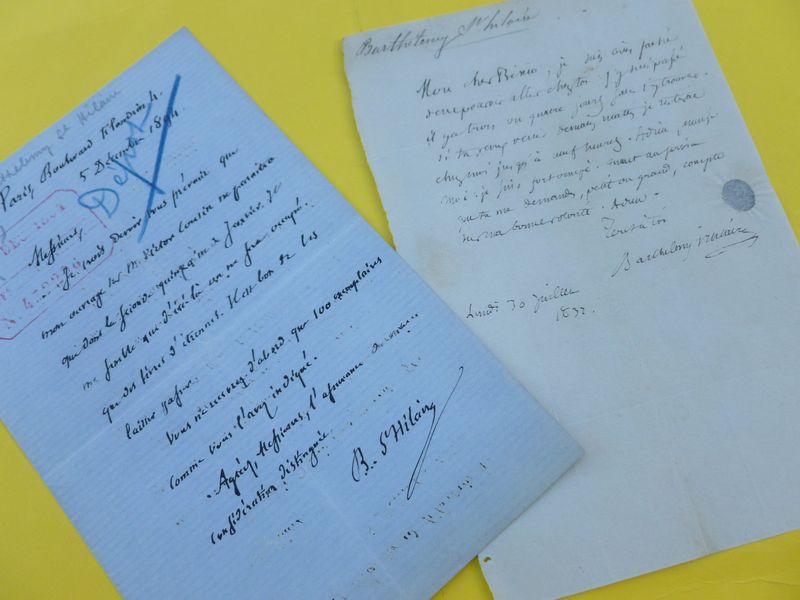 Barthélemy St Hilaire
Paris Boulevard Flandrin 4.
5 Décembre 1894
Dépôt
Messieurs,
Je crois devoir vous prévenir que
mon ouvrage sur M. Victor Cousin ne paraîtra
que dans la seconde quinzaine de Janvier. Il
me semble que d'ici là on ne sera occupé
que des livres d'étrennes. Il est bon de les
laisser passer.
Vous ne recevrez d'abord que 100 exemplaires
comme vous l'avez indiqué.
Agréez, Messieurs, l'assurance de ma
considération distinguée
B. St Hilaire
Barthélemy St hilaire
Mon cher Bixio, je suis bien fâché
de ne pouvoir aller chez toi. J'y suis passé
il y a trois ou quatre jours sans t'y trouver.
Si tu veux venir demain matin je resterai
chez moi jusqu'à neuf heures. Adieu,
moi je suis fort occupé.
que tu me demandes, petit ou grand, compte
sur ma bonne volonté. Adieu.
Tout à toi
Barthélemy St hilaire
Lundi 30 juillet
1832.